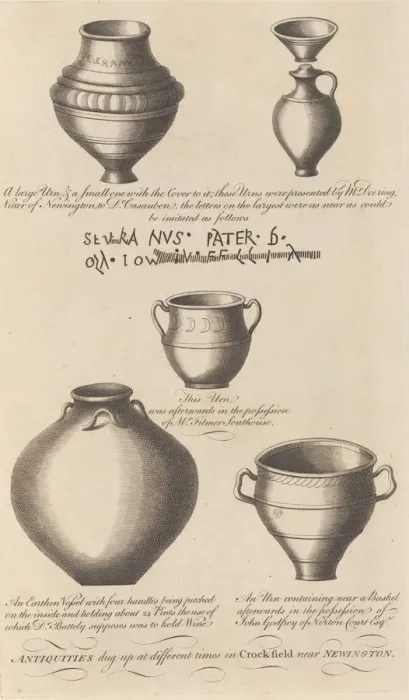 A large Urn & a Small one with the Cover to it; these Urns were presented by Mr. Deering,
Vicar of Newington, to Dr. Casaubon; the letters on the largest were as near as could
be imitated as follows
NVS· PATER·
· I OW
This Urn
was afterwards in the possession
of Mr. Filmer Southouse.
An Earthen Vessel with four handles being pitched
on the inside and holding about 24 Pints the use of
which Dr. Battely supposes was to hold Wine
An Urn containing near a Bushel
afterwards in the possession of
John Godfrey of Norton Court Esqr.
ANTIQUITIES dug up at different times in Crockfield near NEWINGTON.